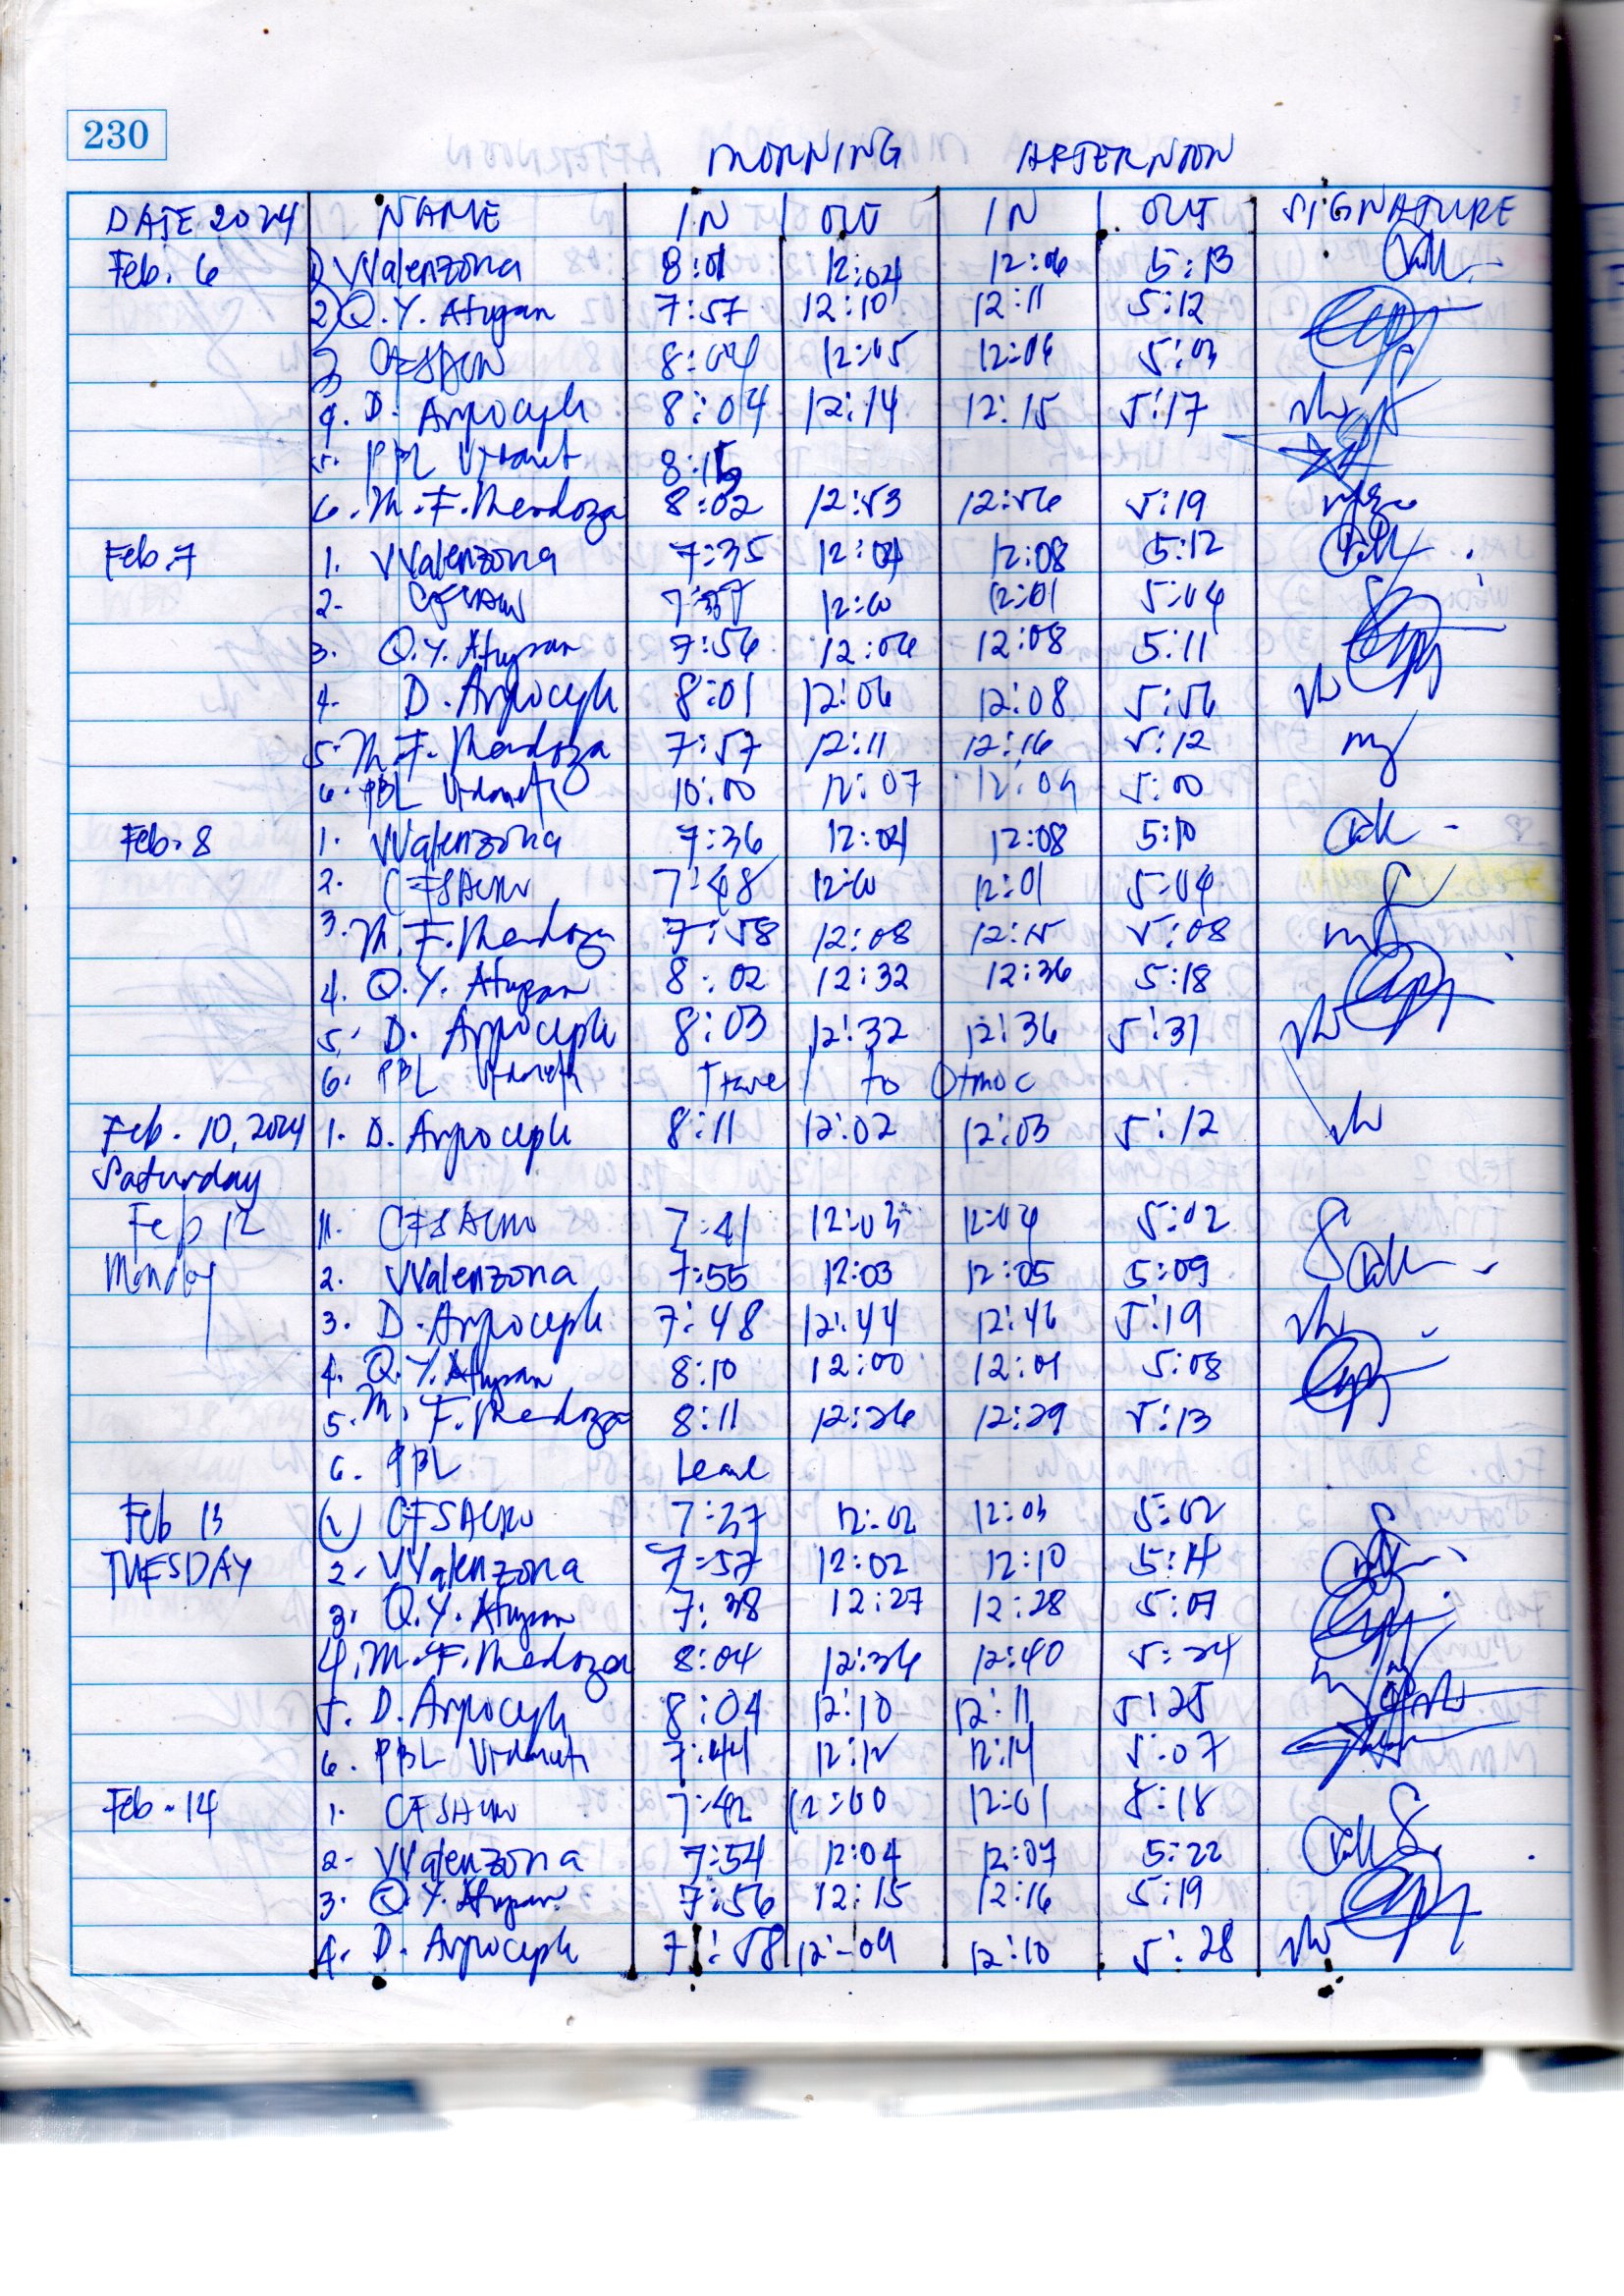 230
MORNING AFTERNOON
DATE 2024 NAME IN OUT IN OUT SIGNATURE
Feb. 6 1) VValenzona 8:01 12:04 12:06 5:13
2) Q.Y. Atupan 7:57 12:10 12:11 5:12
3 8:04 12:05 12:06 5:03
4. D. 8:04 12:14 12:15 5:17
5. PBL 8:15
6. M.F. Mendoza 8:02 12:53 12:56 5:19
Feb. 7 1. VValenzona 7:35 12:04 12:08 5:12
2- 12:00 12:01 5:04
3. Q.Y. Atupan 7:56 12:06 12:08 5:11
4- D. 8:01 12:06 12:08 5:56
5. M.F. Mendoza 7:57 12:11 12:16 5:12
6. PBL 10:00 12:07 12:09 5:00
Feb. 8 1. VValenzona 7:36 12:04 12:08 5:10
2. 7:48 12:00 12:01 5:04
3. M.F. Mendoza 7:58 12:08 12:15 5:08
4. Q.Y. Atupan 8:02 12:32 12:36 5:18
5. D. 8:03 12:32 12:36 5:31
6. PBL Travel to Ormoc
Feb. 10, 2024 1. D. 8:11 12:02 12:03 5:12
Saturday
Feb 12 1. 7:41 12:03 12:04 5:02
Monday 2. VValenzona 7:55 12:03 12:05 5:09
3. D. 7:48 12:44 12:46 5:19
4. Q.Y. Atupan 8:10 12:00 12:01 5:08
5. M. F. Mendoza 8:11 12:26 12:29 5:13
6. PBL Leave
Feb 13 7:37 12:02 12:03 5:02
TUESDAY 2. VValenzona 7:57 12:02 12:10 5:14
3. Q.Y. Atupan 7:38 12:27 12:28 5:07
4. M.F. Mendoza 8:04 12:36 12:40 5:24
5. D. 8:04 12:10 12:11 5:25
6. PBL 7:44 12:12 12:14 5:07
Feb. 14 1. 7:42 12:00 12:01 5:18
2- VValenzona 7:54 12:04 12:07 5:22
3. Q.Y. Atupan 7:56 12:15 12:16 5:19
4. D. 7:58 12:09 12:10 5:28